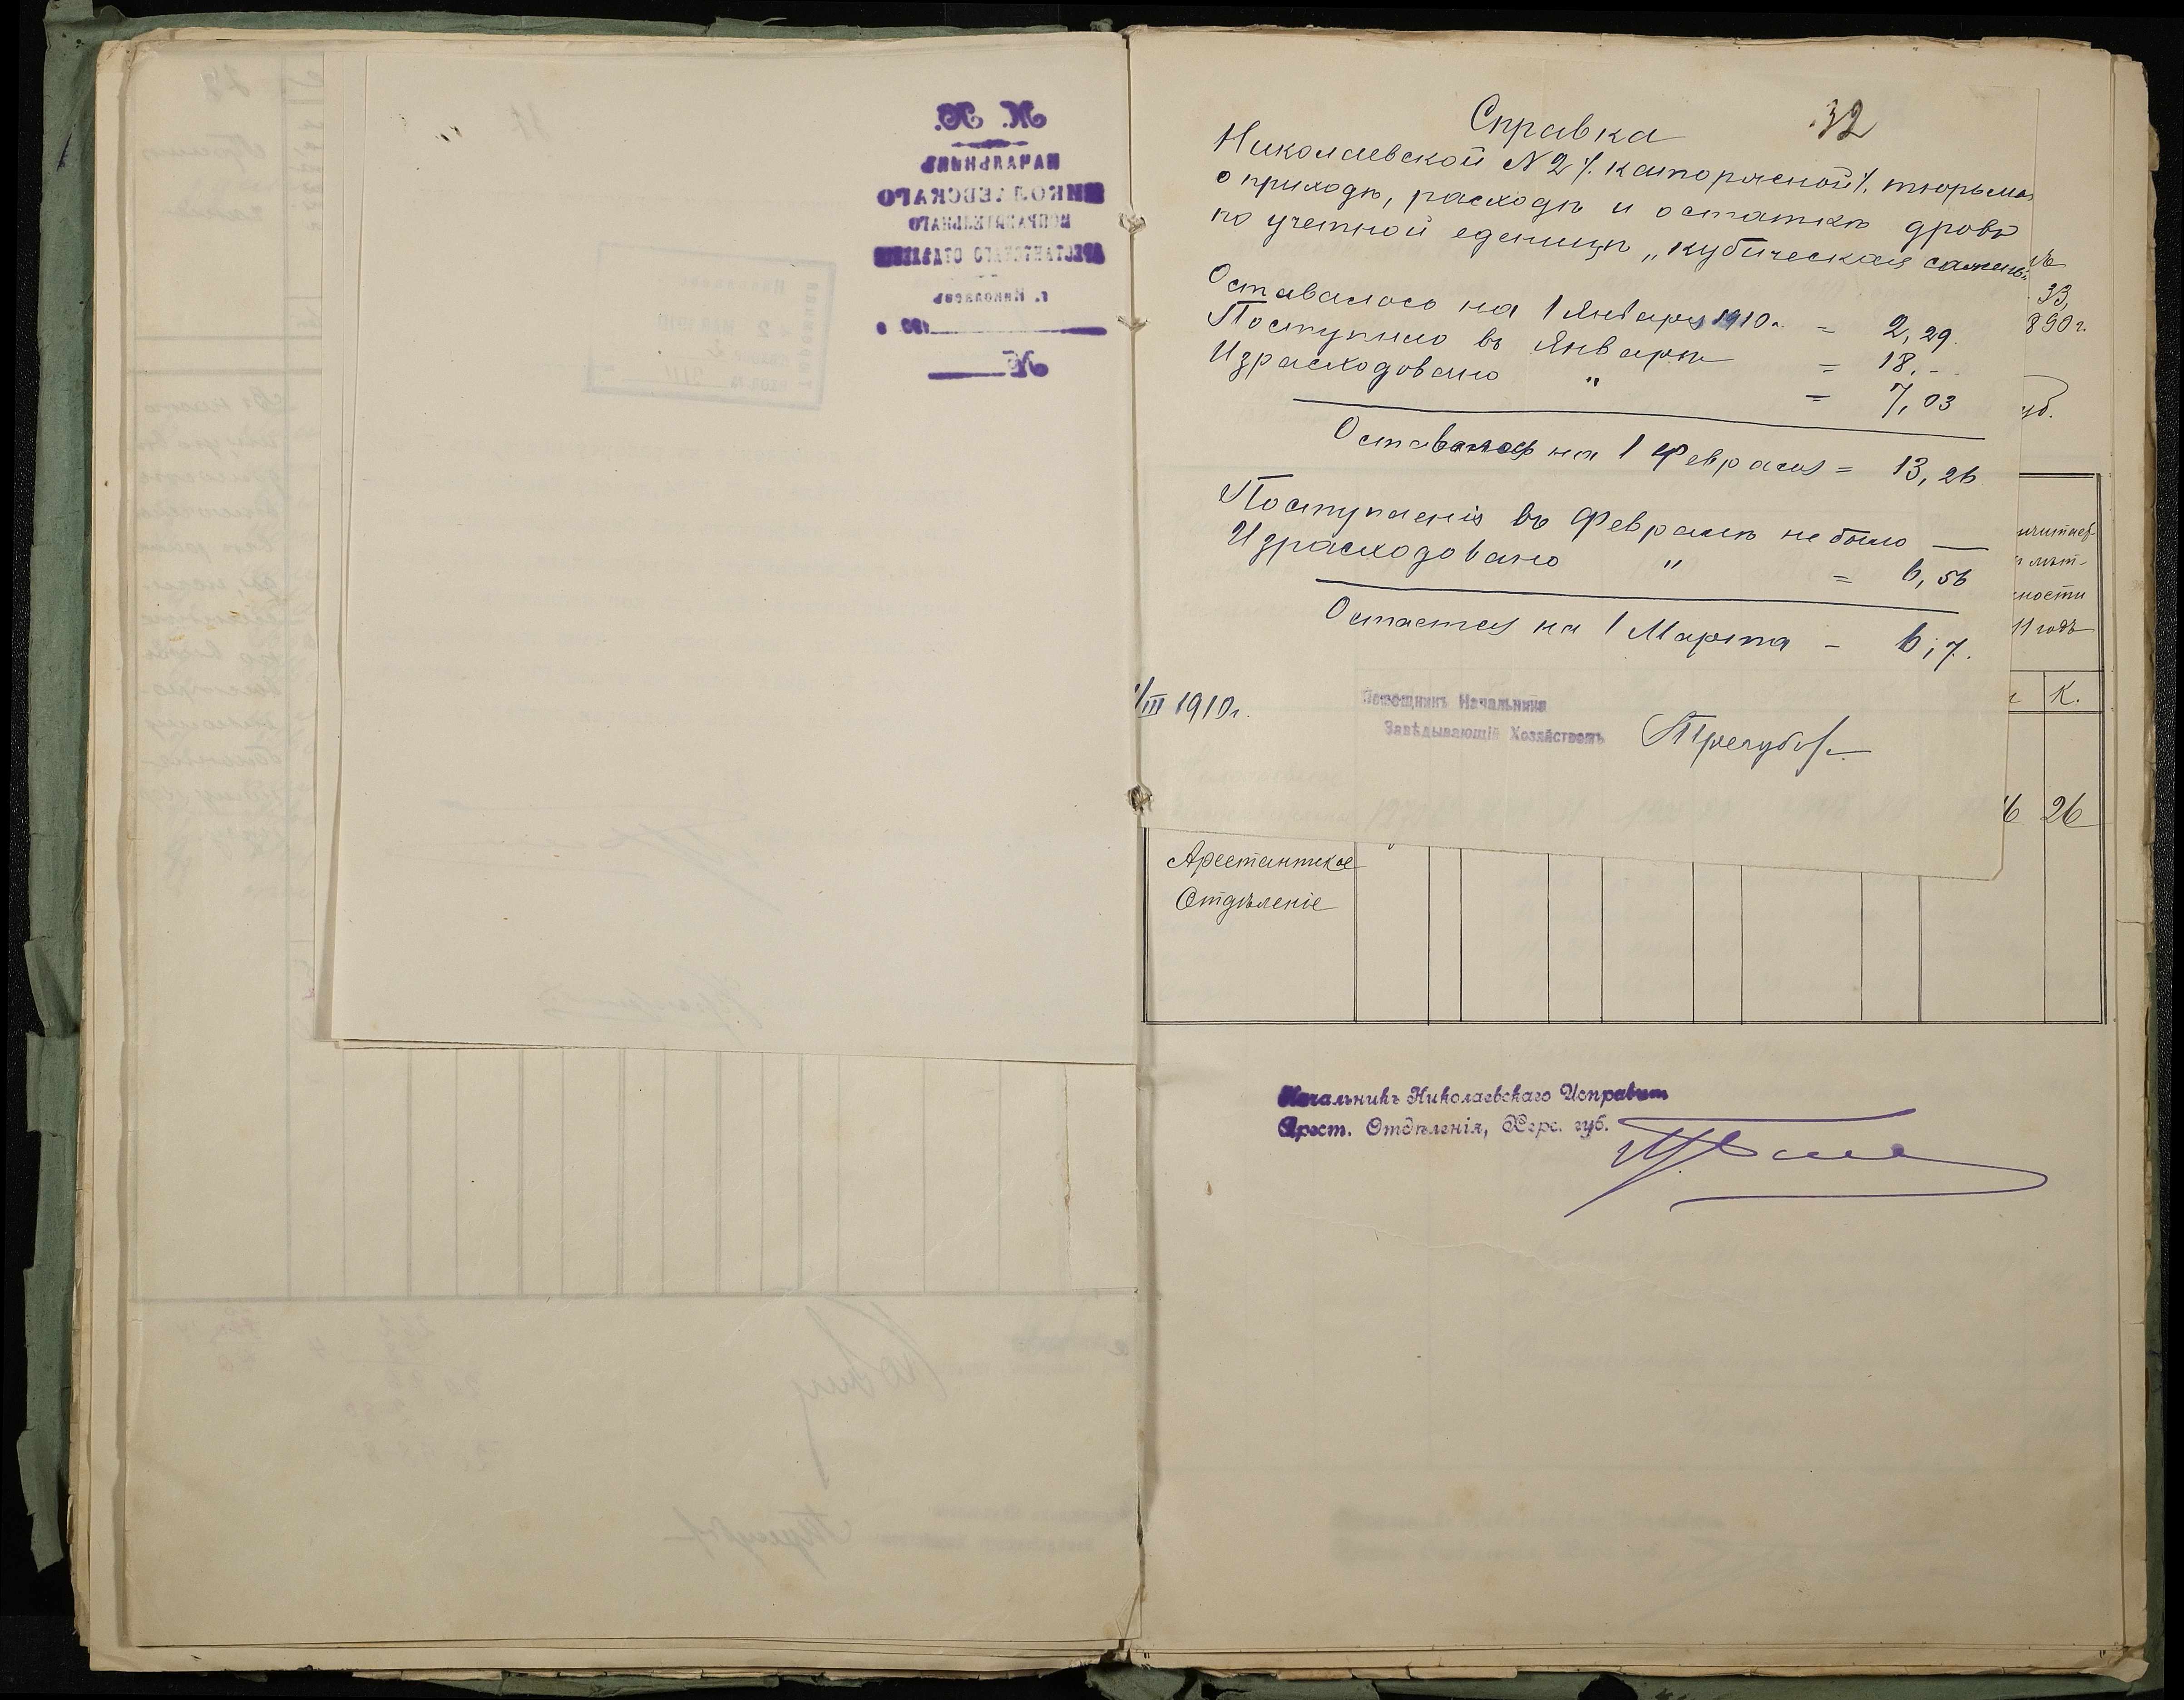 32
Справка
Николаевской № 2 /. каторжной /. тюрьмы
о приходѣ, расходѣ и остаткѣ дровъ
по учетной еденицѣ „кубическая сажень"
Оставалось на 1 Января 1910 г. = 2,29.
Поступило въ Январѣ = 18. -
Израсходовано " = 7,03
Оставалось на 1 Февраля = 13,26
Поступленія въ Февралѣ не было —
Израсходовано " = 6,56
Остается на 1 Марта - 6,7.
/III 1910 г.
Помощникъ Начальника
Завѣдывающій Хозяйствомъ
33,
890 г.
уб.
ности
11 годъ
К.
6 26
Арестантское
Отдѣленіе
Начальникъ Николаевскаго Исправит
Арест. Отдѣленія, Херс. губ.
М. Ю.
НАЧАЛЬНИКЪ
НИКОЛАЕВСКАГО
ИСПРАВИТЕЛЬНАГО
АРЕСТАНТСКАГО ОТДѢЛЕНІЯ
г. Николаевъ
190 г
№